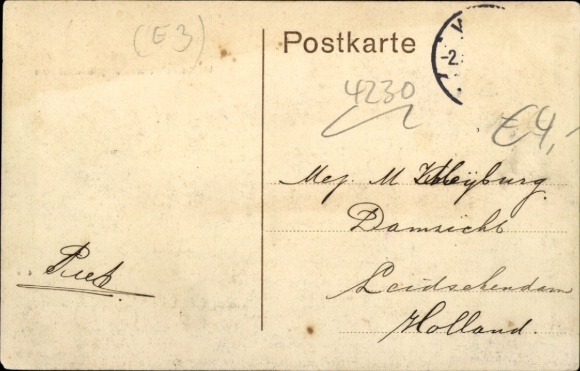 (E3)
Postkarte
-2.
4230
€4,-
Mej. M
Damzicht
Leidschendam
Holland.
Piet.